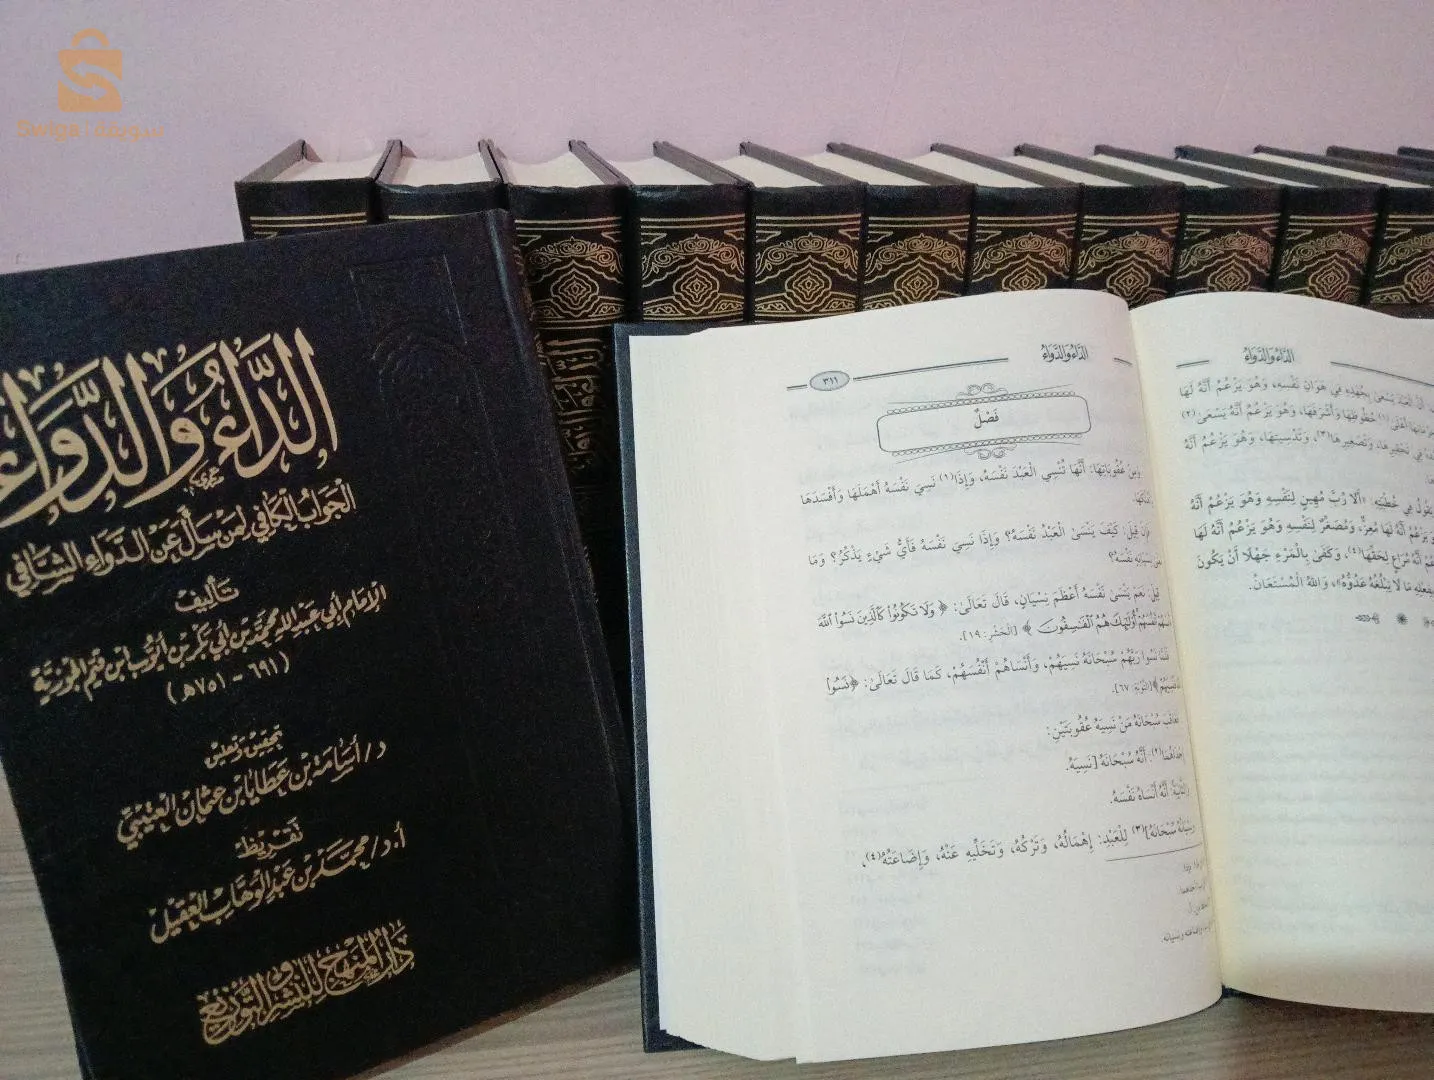 Swiga سويقة
الدَّاءُ وَالدَّوَاءُ
الْجَوَابُ الْكَافِي لِمَنْ سَأَلَ عَنِ الدَّوَاءِ الشَّافِي
تَأليفُ
الإمَامِ أبي عَبْدِ اللهِ مُحَمَّدِ بْنِ أَبي بَكْرِ بْنِ أَيُّوبَ ابْنِ قَيِّمِ الجَوْزِيَّةِ
(٦٩١ - ٧٥١هـ)
تحقيق وتعليق
د/ أسامة بن عطايا بن عثمان العتيبي
تقريظ
أ.د/ محمد بن عبد الوهاب العقيل
دار المنهج للنشر والتوزيع
الدَّاءُ وَالدَّوَاءُ
الدَّاءُ وَالدَّوَاءُ
٣١١
فَصْلٌ
وَمِنْ عُقُوبَاتِهَا: أَنَّهَا تُنْسِي الْعَبْدَ نَفْسَهُ، وَإِذَا(١) نَسِيَ نَفْسَهُ أَهْمَلَهَا وَأَفْسَدَهَا
قِيلَ: كَيْفَ يَنْسَى الْعَبْدُ نَفْسَهُ؟ وَإِذَا نَسِيَ نَفْسَهُ فَأَيُّ شَيْءٍ يَذْكُرُ؟ وَمَا
نِسْيَانِهِ نَفْسَهُ؟
قِيلَ: نَعَمْ يَنْسَى نَفْسَهُ أَعْظَمَ نِسْيَانٍ، قَالَ تَعَالَى: ﴿وَلَا تَكُونُوا كَالَّذِينَ نَسُوا اللَّهَ
أَنْفُسَهُمْ أُولَٰئِكَ هُمُ الْفَاسِقُونَ﴾ [الْحَشْرِ: ١٩].
نَسُوا رَبَّهُمْ سُبْحَانَهُ نَسِيَهُمْ، وَأَنْسَاهُمْ أَنْفُسَهُمْ، كَمَا قَالَ تَعَالَى: ﴿نَسُوا
[التَّوْبَةِ: ٦٧].
سُبْحَانَهُ مَنْ نَسِيَهُ عُقُوبَتَيْنِ:
إِحْدَاهُمَا(٢): أَنَّهُ سُبْحَانَهُ [نَسِيَهُ.
وَالثَّانِيَةُ: أَنَّهُ أَنْسَاهُ نَفْسَهُ.
سُبْحَانَهُ](٣) لِلْعَبْدِ: إِهْمَالُهُ، وَتَرْكُهُ، وَتَخَلِّيهِ عَنْهُ، وَإِضَاعَتُهُ(٤)،
الدَّاءُ وَالدَّوَاءُ
أَنَّ الْعَبْدَ يَسْعَى بِجُهْدِهِ فِي هَوَانِ نَفْسِهِ، وَهُوَ يَزْعُمُ أَنَّهُ لَهَا
(١) حُظُوظِهَا وَأَشْرَفَهَا، وَهُوَ يَزْعُمُ أَنَّهُ يَسْعَى(٢)
فِي تَحْقِيرِهَا، وَتَصْغِيرِهَا(٣)، وَتَدْسِيَتِهَا، وَهُوَ يَزْعُمُ أَنَّهُ
يَقُولُ فِي خُطْبَتِهِ: «أَلَا رُبَّ مُهِينٍ لِنَفْسِهِ وَهُوَ يَزْعُمُ أَنَّهُ
يَزْعُمُ أَنَّهُ لَهَا مُعِزٌّ، وَمُصَغِّرٌ لِنَفْسِهِ وَهُوَ يَزْعُمُ أَنَّهُ لَهَا
أَنَّهُ مُرَاعٍ لِحَقِّهَا(٤)، وَكَفَى بِالْمَرْءِ جَهْلًا أَنْ يَكُونَ
بِفِعْلِهِ مَا لَا يَبْلُغُهُ عَدُوُّهُ»، وَاللهُ الْمُسْتَعَانُ.